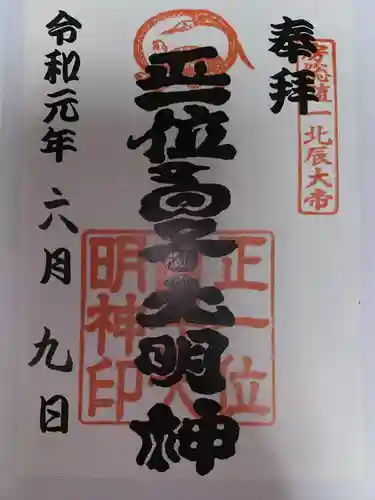 奉拝
房総 一 北辰大帝
正一位高 大明神
正一位
明神印
令和元年 六月 九日